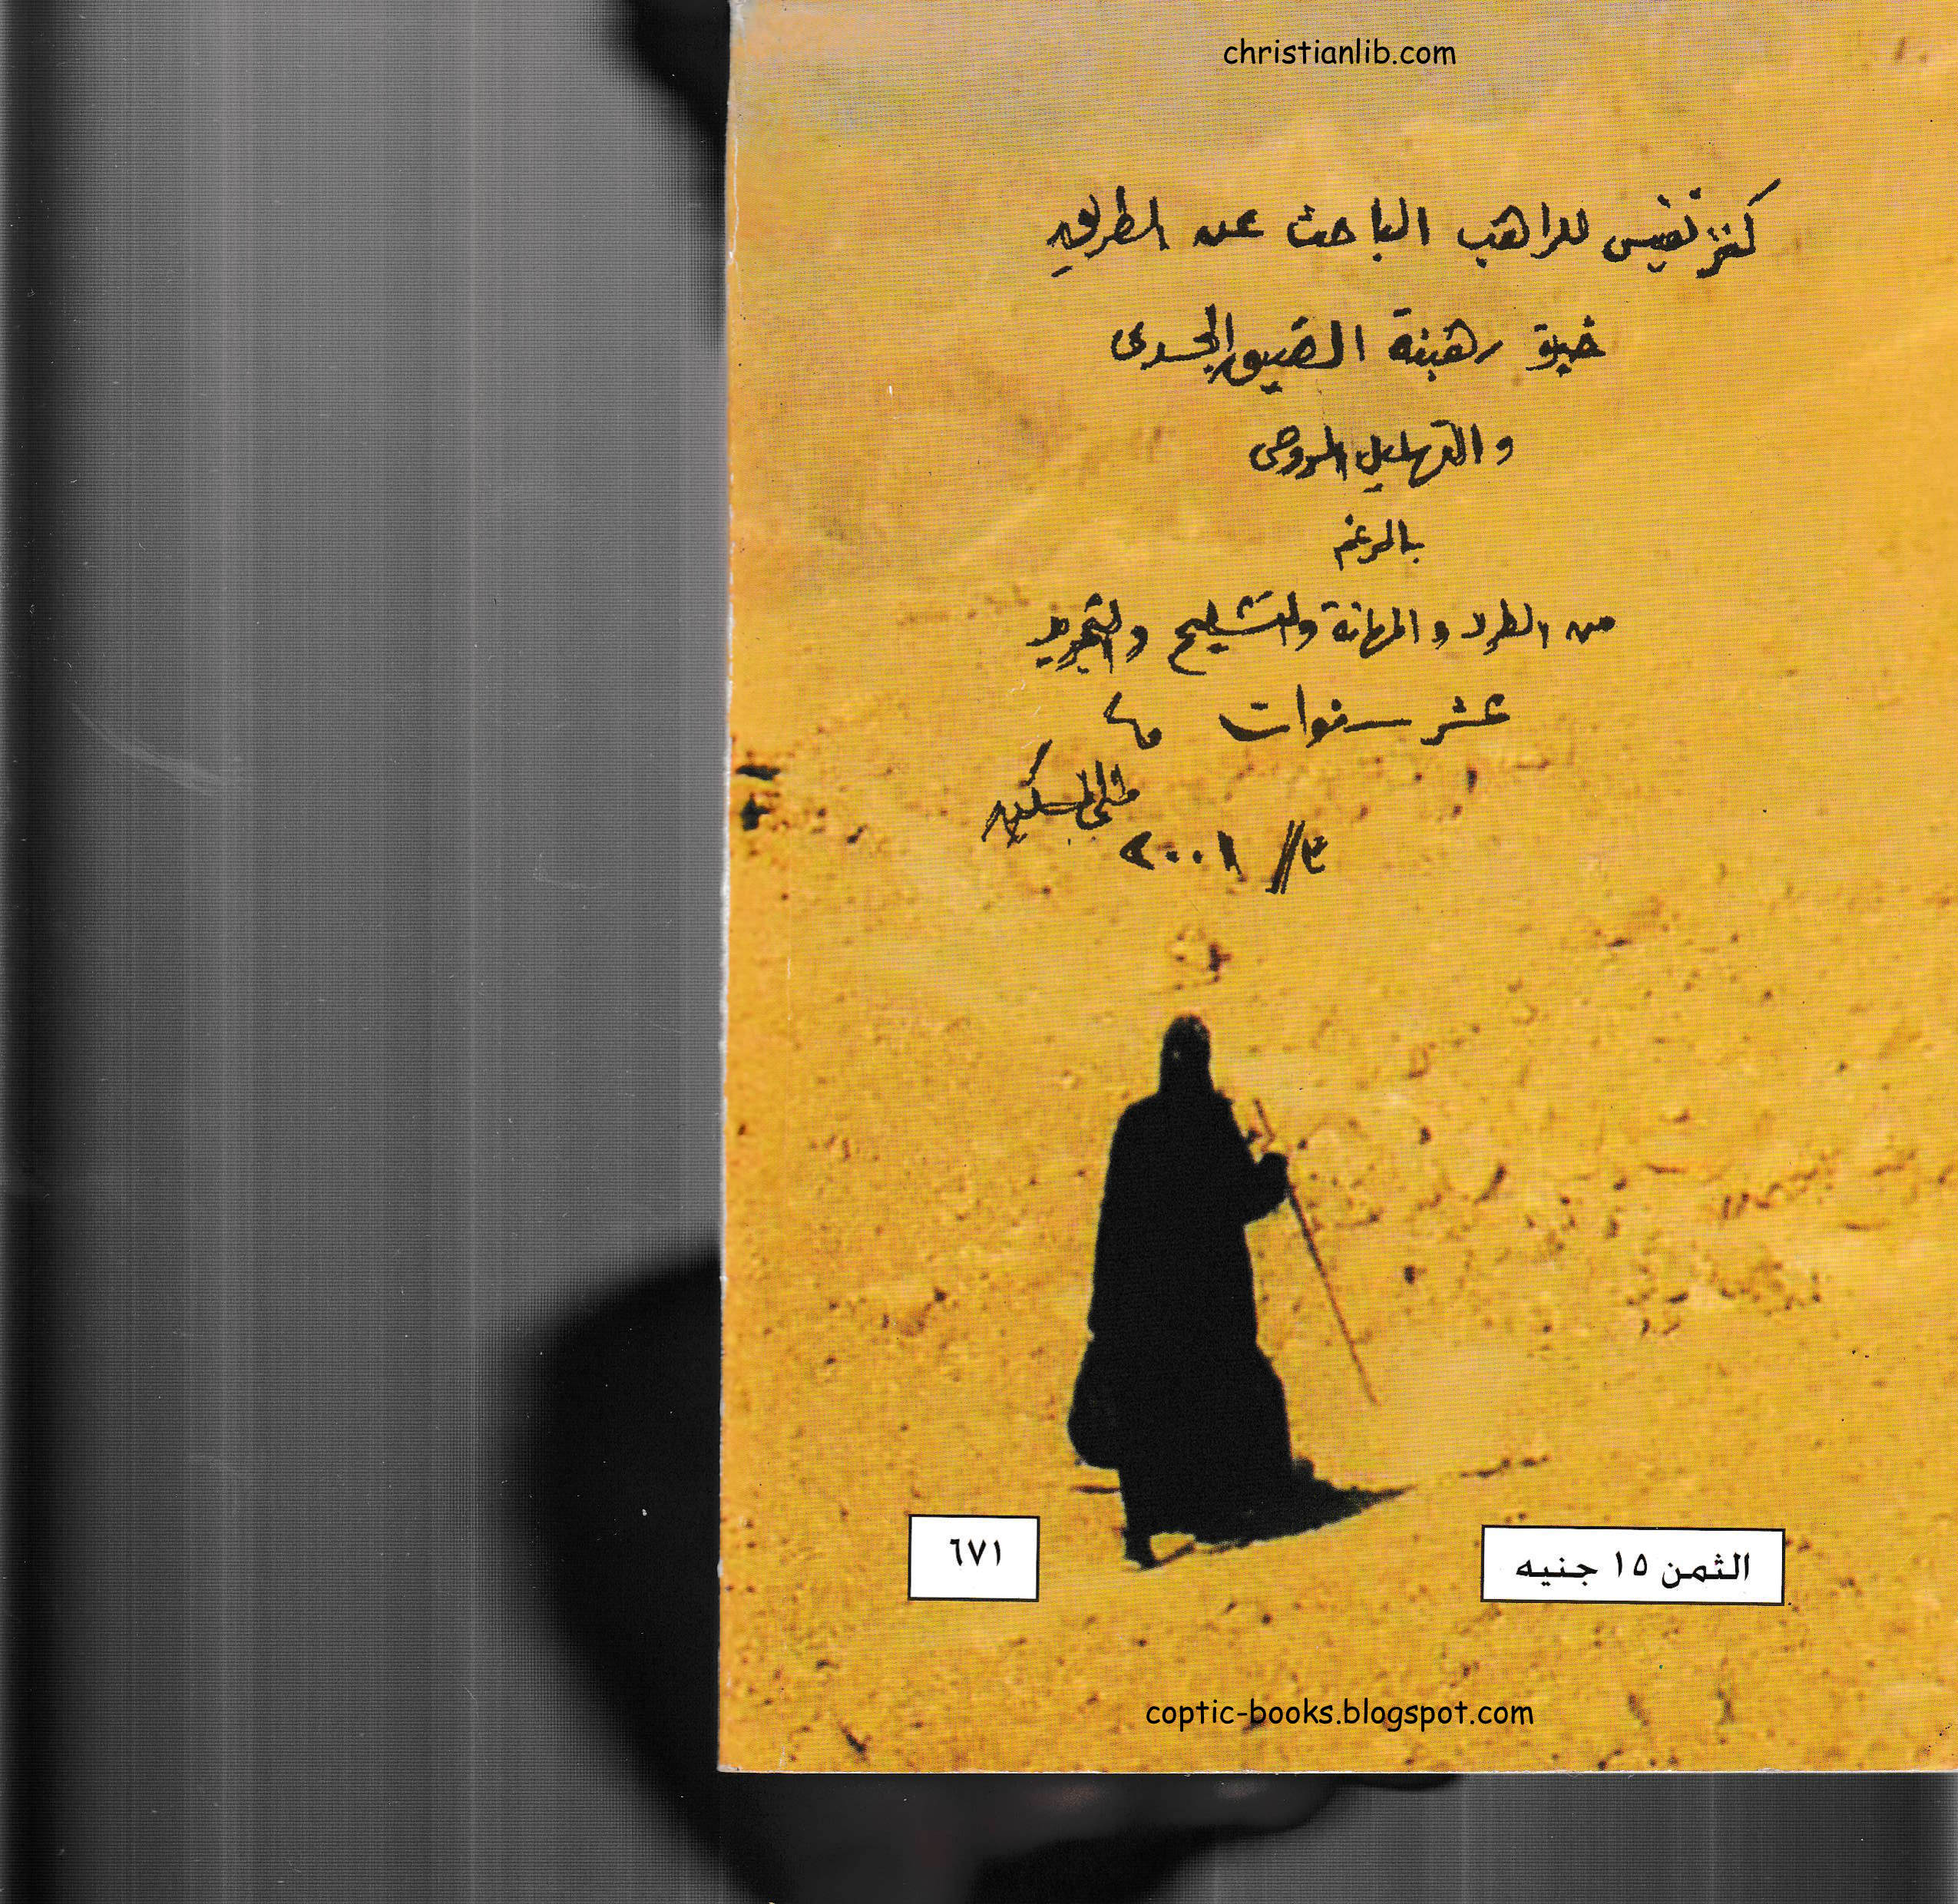 christianlib.com
كنز نفيس للراهب الباحث عن الطريق
خبرة رهبنة الضيق الجسدى
والتهليل الروحى
بالرغم
من الطرد والمهانة والتشليح والتجريد
عشر سنوات
متى المسكين
٣/ /٢٠٠١
٦٧١
الثمن ١٥ جنيه
coptic-books.blogspot.com